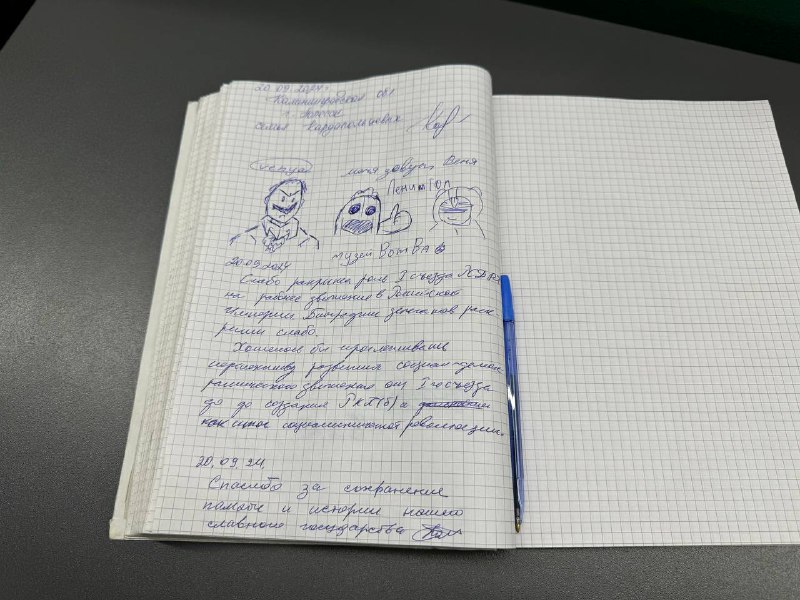 20.09.2024г.
Калининградская обл
г.
семья Кардопольцевых
меня зовут Веня
Ленин Топ
музей ВотВа
20.09.2024
Слабо раскрыта роль I съезда РСДРП
на рабочее движение в Российской
Империи.
слабо.
Хотелось бы
развития социал-демок
ратического движения от I-го съезда
до до создания РКП(б) и
как итог социалистической революции.
20.09.24.
Спасибо за сохранение
памяти и истории нашего
славного государства